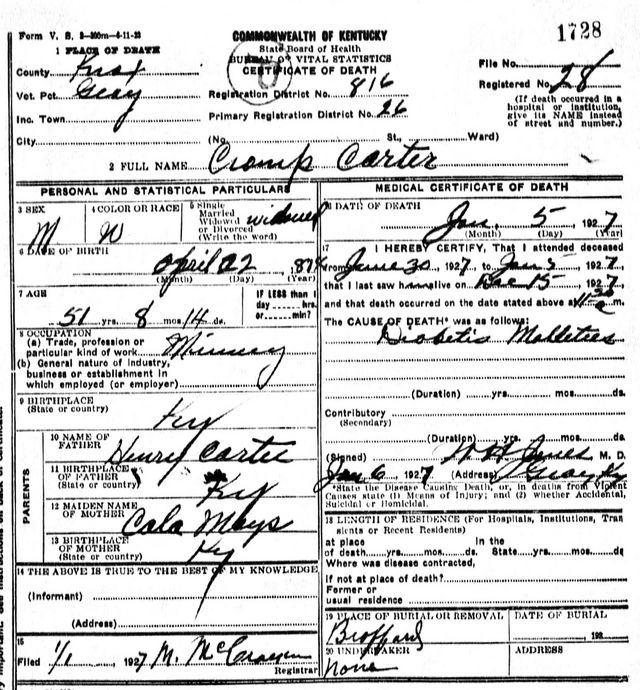 1728
Form V. S. 2-200m-4-11-23
COMMONWEALTH OF KENTUCKY
State Board of Health
BUREAU OF VITAL STATISTICS
CERTIFICATE OF DEATH
1 PLACE OF DEATH
County Knox
Vot. Pct. Gray
Inc. Town
City
Registration District No. 816
Primary Registration District No. 26
(No. St., Ward)
File No.
Registered No. 28
(If death occurred in a
hospital or institution,
give its NAME instead
of street and number.)
2 FULL NAME Cromp Carter
PERSONAL AND STATISTICAL PARTICULARS
3 SEX
M
4 COLOR OR RACE
W
5 Single
Married
Widowed
or Divorced
(Write the word)
widowed
6 DATE OF BIRTH
April 22 1874
(Month) (Day) (Year)
7 AGE
51 yrs. 8 mos. 14 ds.
IF LESS than 1
day hrs.
or min?
8 OCCUPATION
(a) Trade, profession or
particular kind of work
(b) General nature of industry,
business or establishment in
which employed (or employer)
9 BIRTHPLACE
(State or country)
Ky
PARENTS
10 NAME OF
FATHER
Henry Carter
11 BIRTHPLACE
OF FATHER
(State or country)
Ky
12 MAIDEN NAME
OF MOTHER
Mays
13 BIRTHPLACE
OF MOTHER
(State or country)
Ky
14 THE ABOVE IS TRUE TO THE BEST OF MY KNOWLEDGE
(Informant)
(Address)
15
Filed 1/1 1927 M. Registrar
MEDICAL CERTIFICATE OF DEATH
DATE OF DEATH
Jan. 5 1927
(Month) (Day) (Year)
17 I HEREBY CERTIFY, That I attended deceased
from June 30 1927 to Jan 5 1927
that I last saw h alive on Dec 15 1927
and that death occurred on the date stated above at m.
The CAUSE OF DEATH* was as follows:
(Duration) yrs. mos. ds.
Contributory
(Secondary)
(Duration) yrs. mos. ds.
(Signed) W H Jones M. D.
Jan 6 1927 (Address) Gray Ky
the Disease Causing Death, or, in deaths from Violent
Causes state (1) Means of Injury; and (2) whether Accidental,
Suicidal or Homicidal.
18 LENGTH OF RESIDENCE (For Hospitals, Institutions, Tran
sients or Recent Residents)
at place In the
of death yrs. mos. ds. State yrs. mos. ds.
Where was disease contracted,
If not at place of death?
Former or
usual residence
19 PLACE OF BURIAL OR REMOVAL
DATE OF BURIAL
192
20 UNDERTAKER
none
ADDRESS